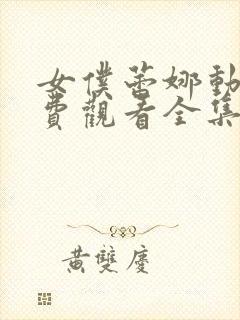 女僕蕾娜動
費觀看全集
黃雙慶